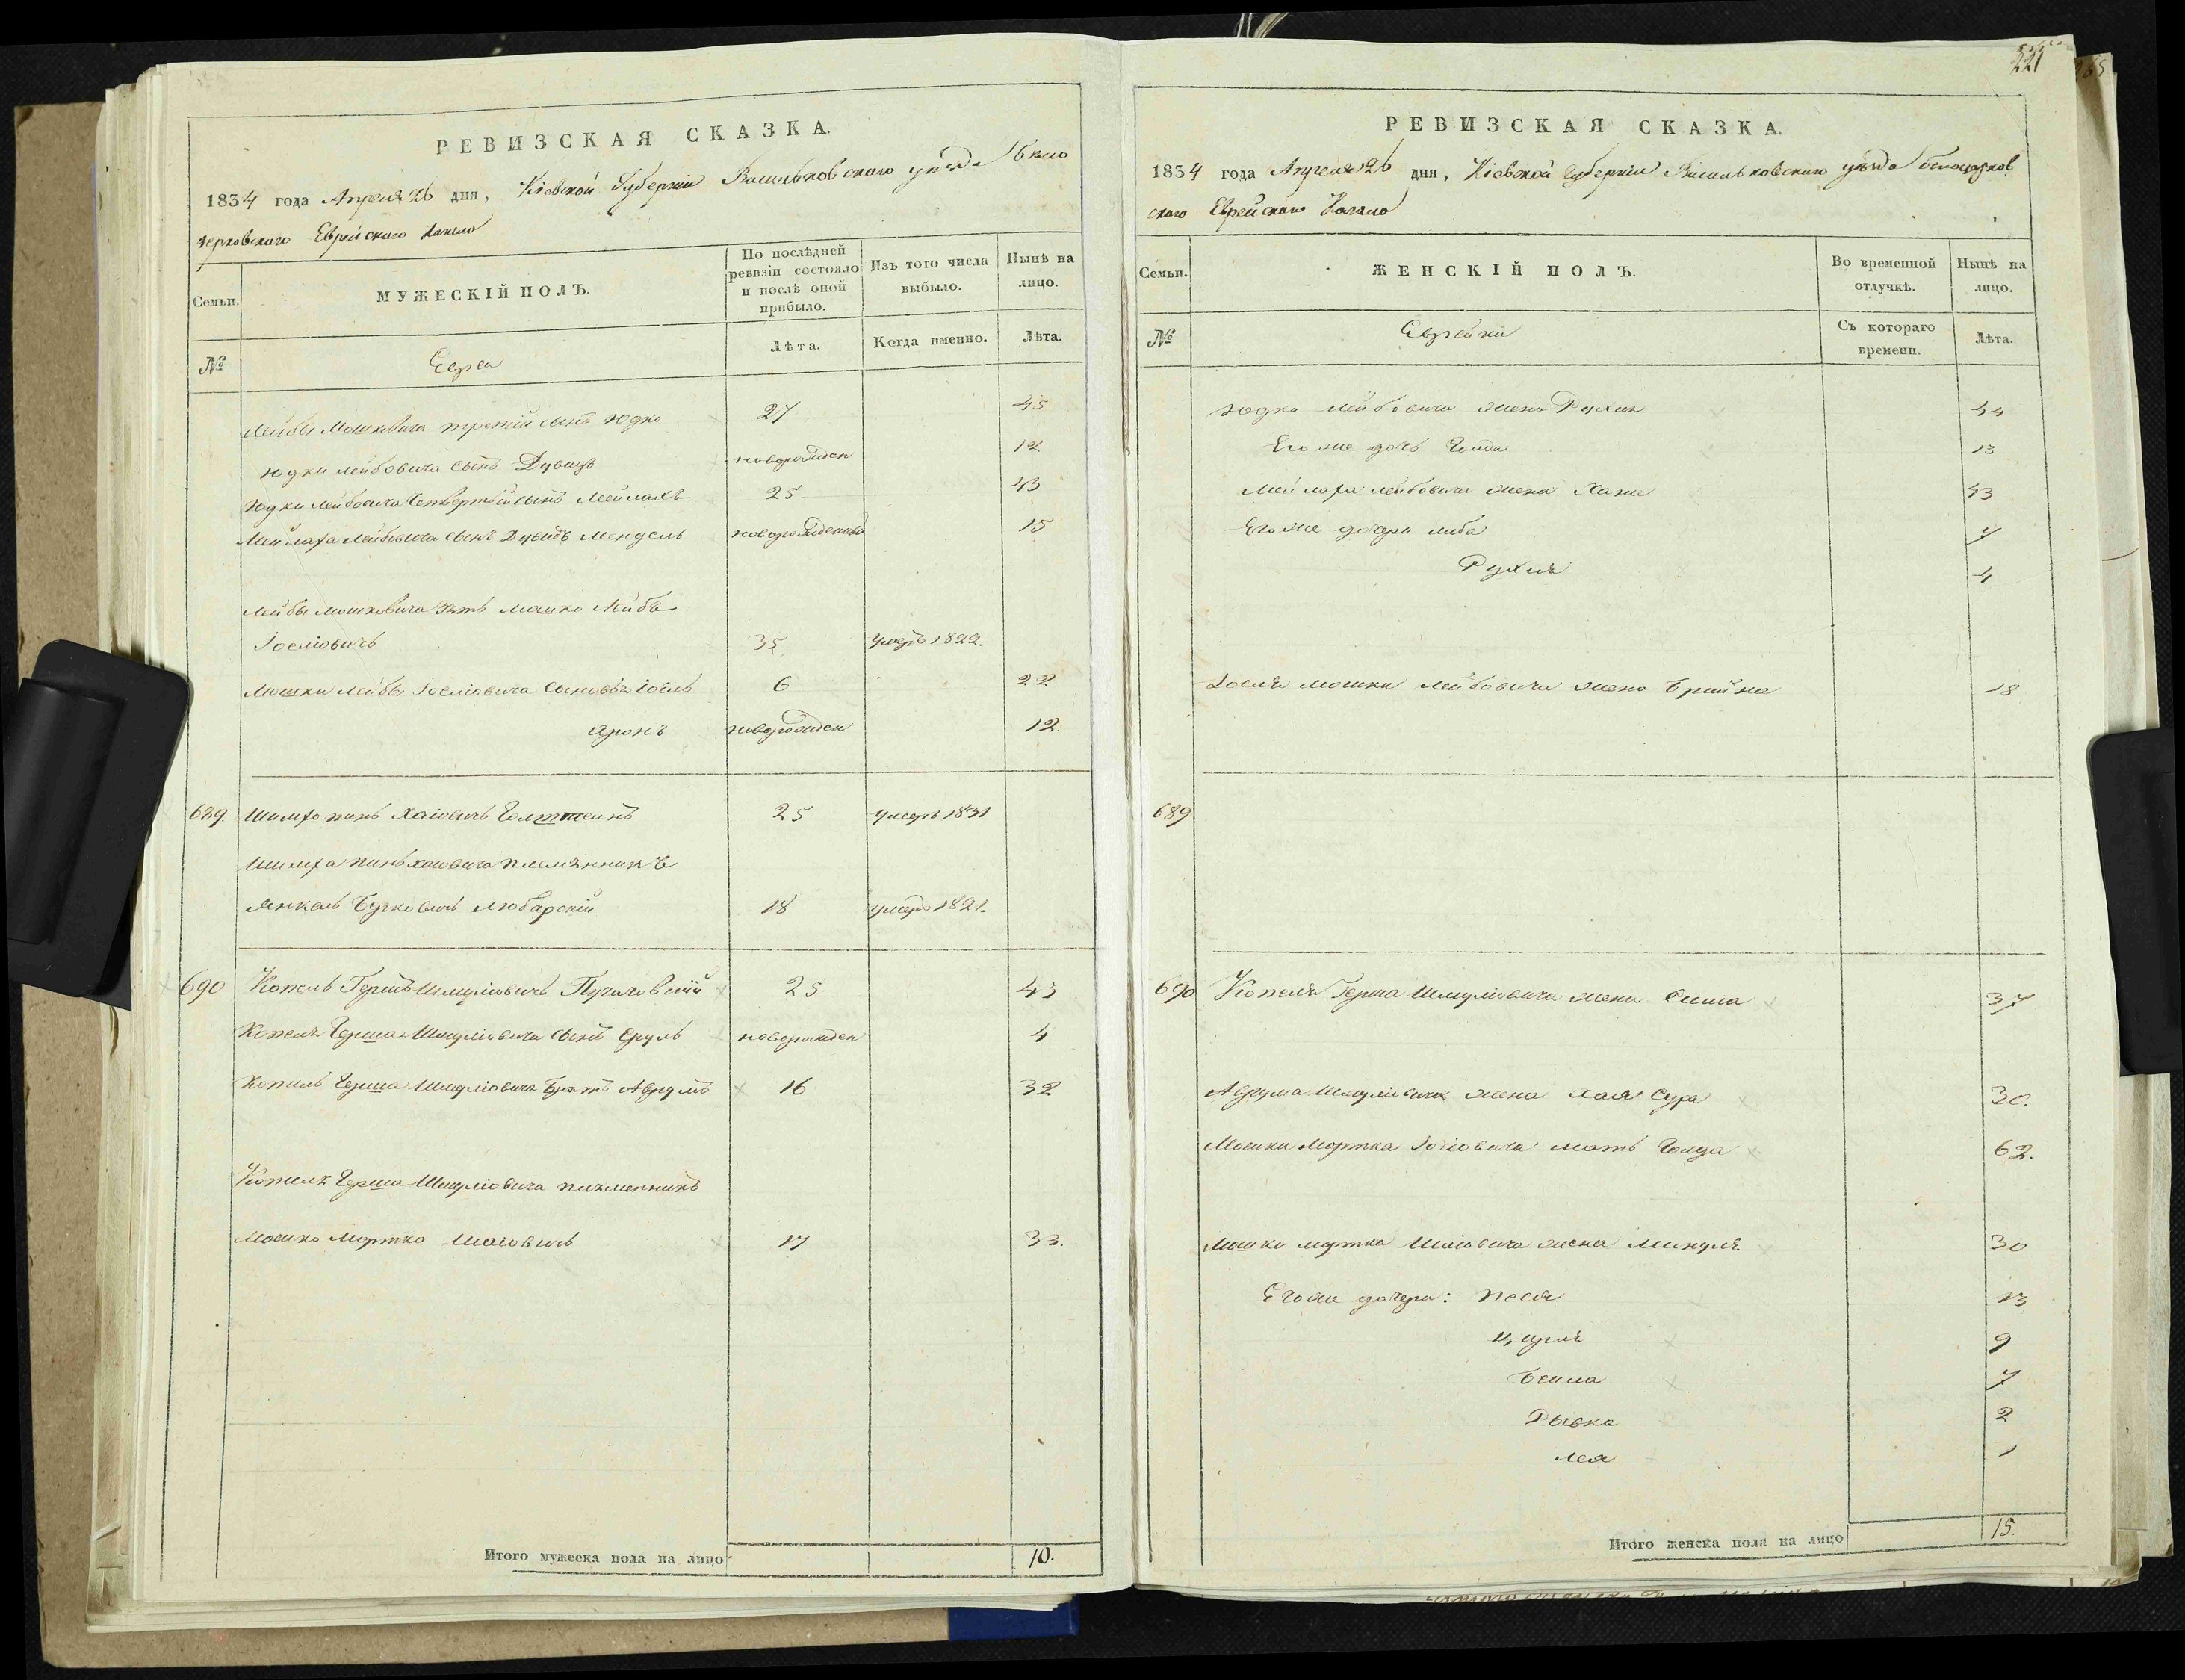 РЕВИЗСКАЯ СКАЗКА.
1834 года Апреля 26 дня, Кіевской Губерніи Васильковскаго уѣзда Бѣло
церковскаго Еврейскаго Кагала
Семьи.
МУЖЕСКІЙ ПОЛЪ.
По послѣдней ревизіи состояло и послѣ оной прибыло.
Изъ того числа выбыло.
Нынѣ на лицо.
№
Евреи
Лѣта.
Когда именно.
Лѣта.
Лейбы Мошковича третій сынъ Юдко 27 45
Юдки Лейбовича сынъ Дувидъ новорожден 12
Юдки Лейбовича Четвертый сынъ Мейлахъ 25 43
Мейлаха Лейбовича сынъ Дувидъ Мендель новорожденный 15
Лейбы Мошковича зять Мошко Лейба
Іосліовичъ 35 умеръ 1822.
Мошки Лейбы Іосліовича сыновья Іосль 6 22
Аронъ новорожден 12.
689. Шимха Хаіовичъ 25 умеръ 1831
Шимха племянникъ
Янкель Любарскій 18 умеръ 1821.
690 Копель Гершъ Шмуліовичъ 25 43
Копеля Герша Шмуліовича сынъ Сруль новорожден 4
Копиль Герша Шмуліовича братъ Аврумъ 16 32
Копеля Герша Шмуліовича племенникъ
Мошко Мортко Шаіовичъ 17 33.
Итого мужеска пола на лицо 10.
221
РЕВИЗСКАЯ СКАЗКА.
1834 года Апреля 26 дня, Кіевской Губерніи Васильковскаго уѣзда Белоцерков
скаго Еврейскаго Кагала
Семьи.
ЖЕНСКІЙ ПОЛЪ.
Во временной отлучкѣ.
Нынѣ на лицо.
№
Еврейки
Съ котораго времени.
Лѣта.
Юдки Лейбовича жена Рухля 44
Его же дочь Голда 13
Мейлаха Лейбовича жена Хана 43
Его же дочери Либа 7
Рухля 4
Іосля Мошки Лейбовича жена Брайна 18
689
690 Копеля Герша Шмуліовича жена Сима 37
Аврума Шмуліовича жена Хая Сура 30.
Мошки Мортка мать Голда 62.
Мошки Мортка Шаіовича жена 30
Его же дочери: Песя 13
9
Бейла 7
Рывка 2
Лея 1
Итого женска пола на лицо 15.